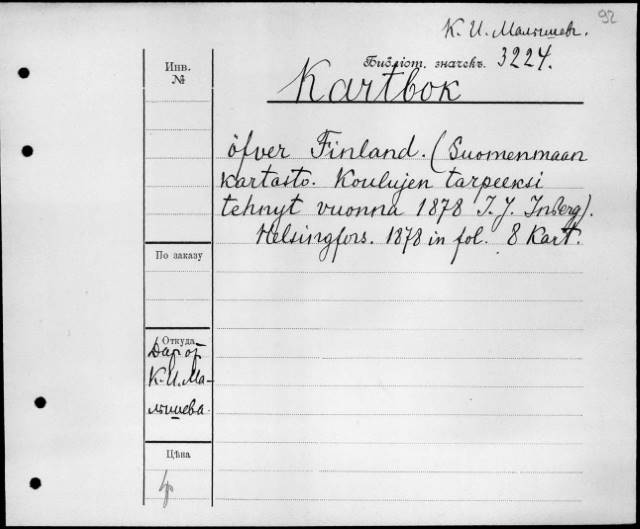 92
К. И. Малышевъ.
Библіот. значекъ. 3224.
Инв.
№
Kartbok
öfver Finland. (Suomenmaan
kartasto. Koulujen tarpeeksi
tehnyt vuonna 1878 I. J. Inberg).
Helsingfors. 1878 in fol. 8 Kart.
По заказу
Откуда
Дар от
К. И. Ма-
лышева.
Цѣна